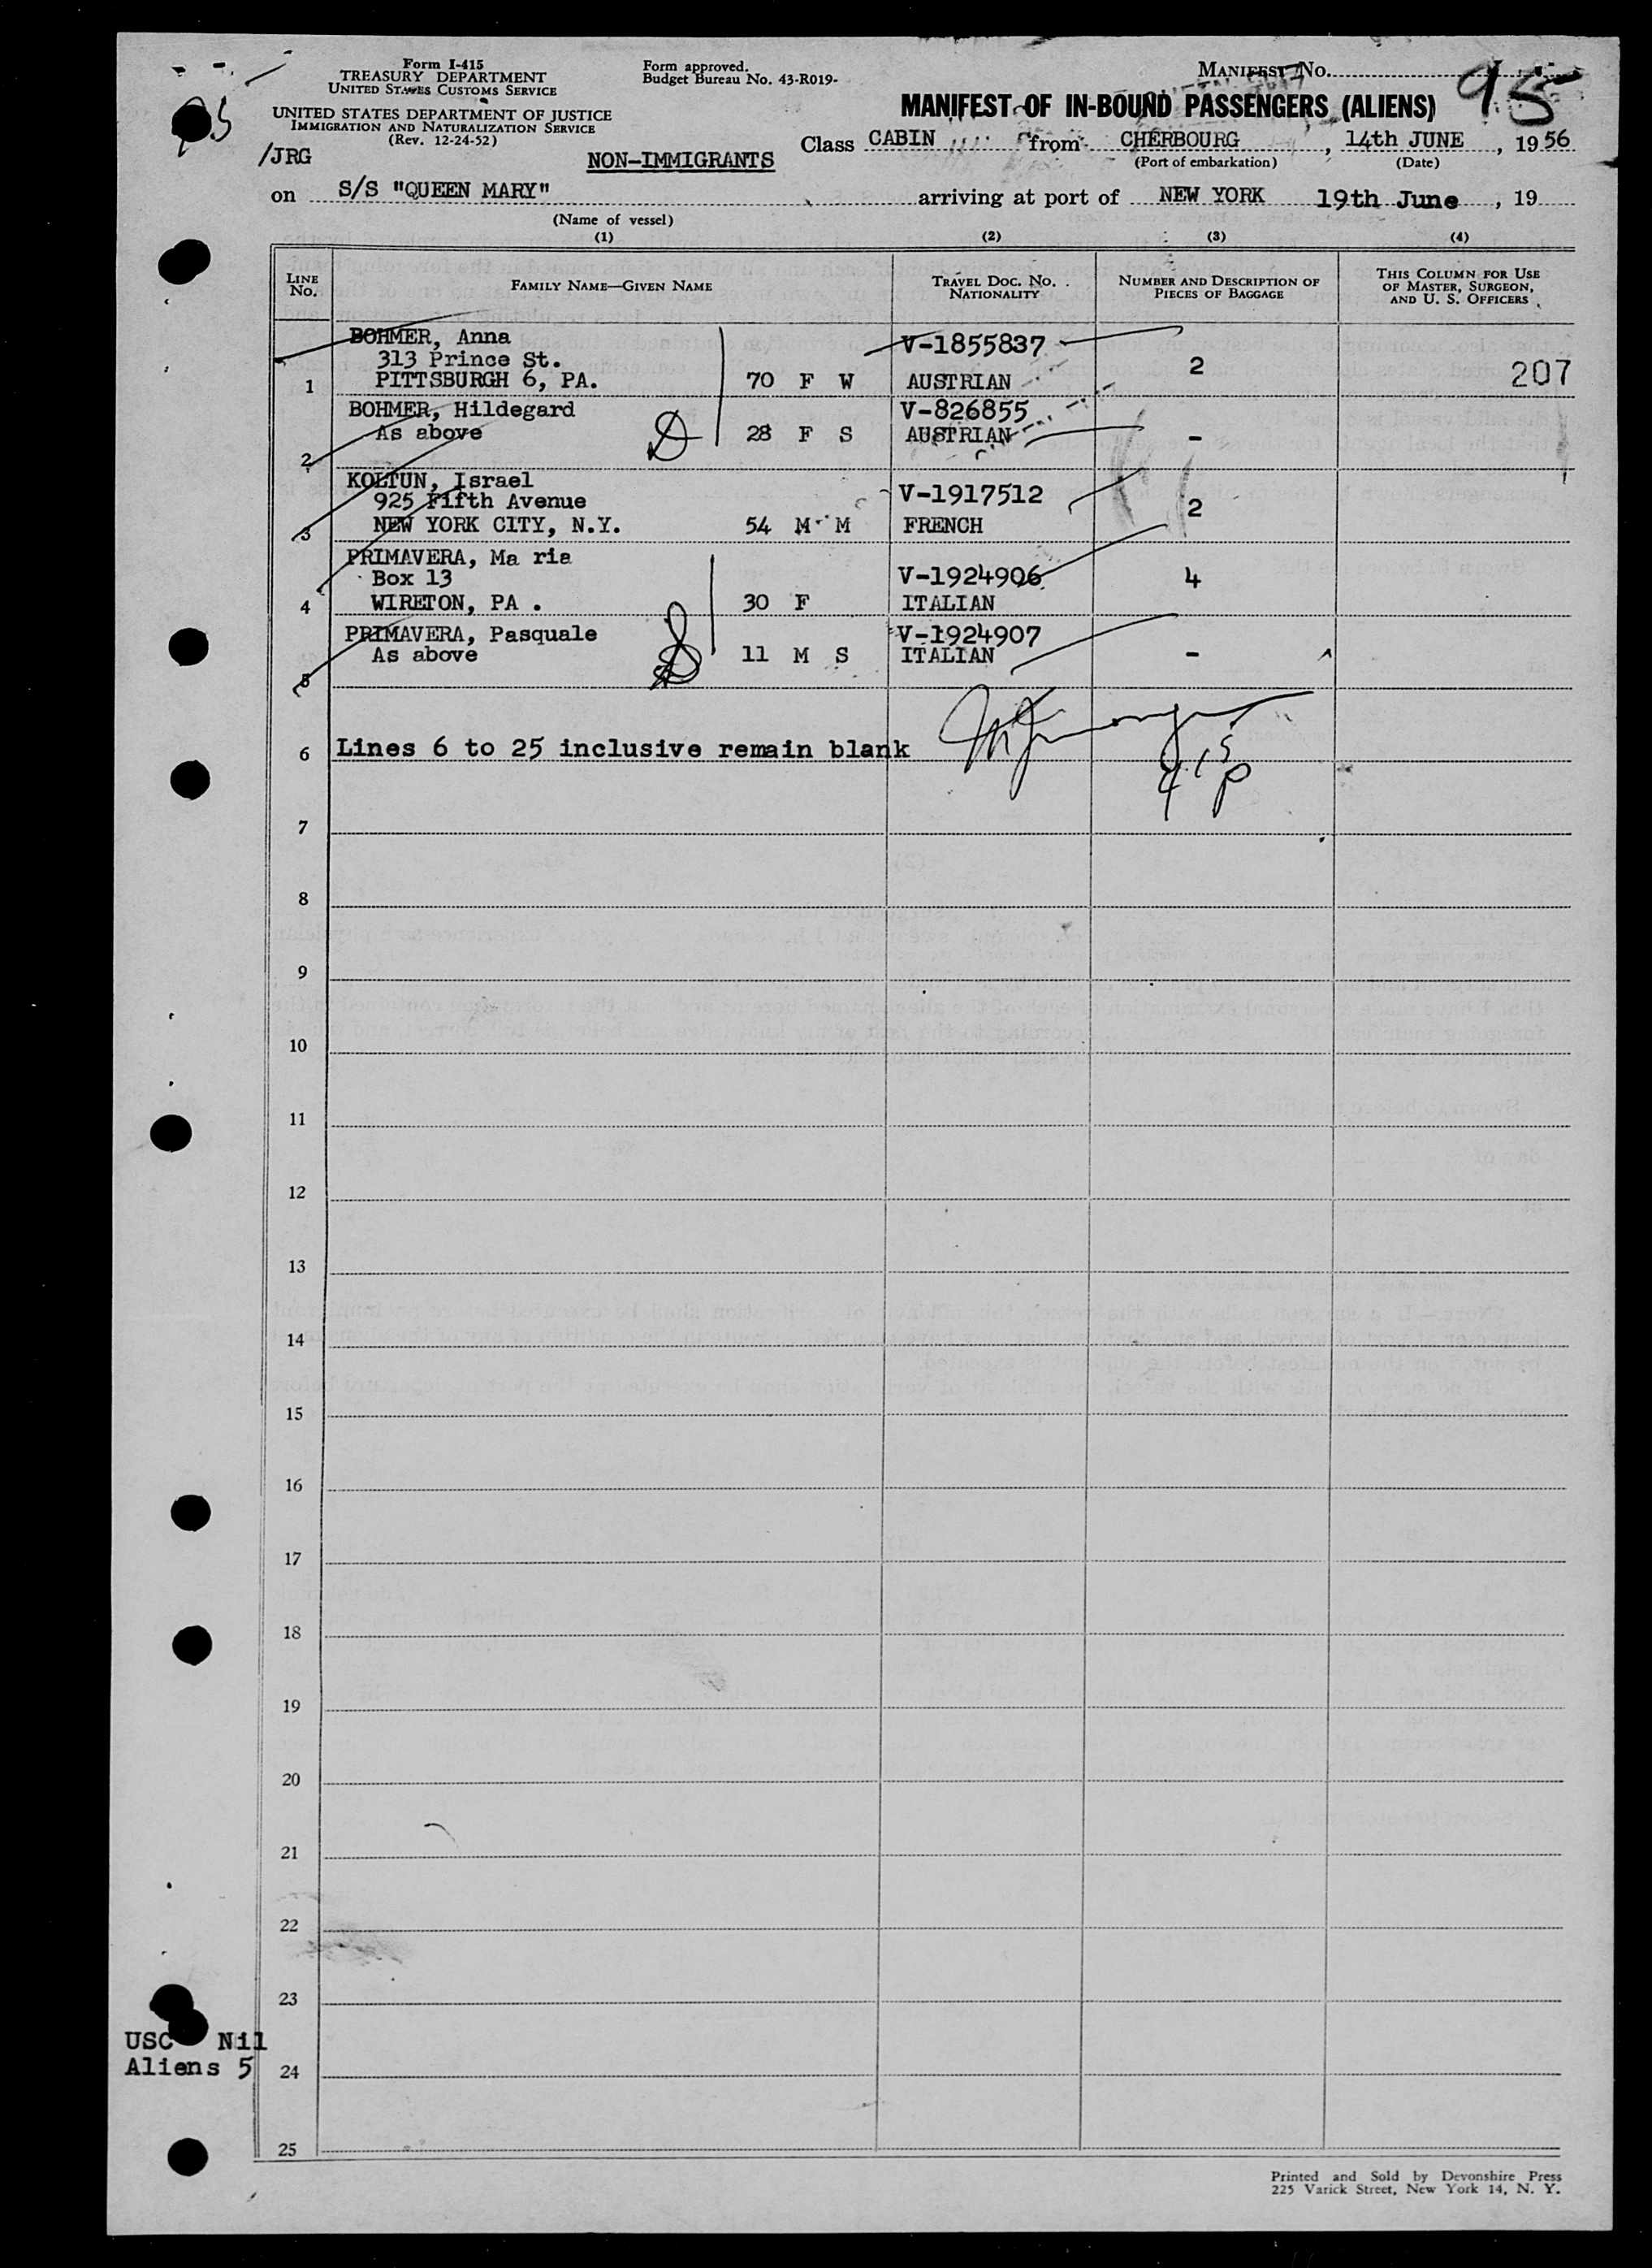 Form I-415
TREASURY DEPARTMENT
UNITED STATES CUSTOMS SERVICE
UNITED STATES DEPARTMENT OF JUSTICE
IMMIGRATION AND NATURALIZATION SERVICE
(Rev. 12-24-52)
/JRG
Form approved.
Budget Bureau No. 43-R019-
MANIFEST No.
95
MANIFEST OF IN-BOUND PASSENGERS (ALIENS)
NON-IMMIGRANTS
Class CABIN from CHERBOURG, 14th JUNE, 1956
(Port of embarkation) (Date)
on S/S "QUEEN MARY" arriving at port of NEW YORK 19th June, 19
(Name of vessel)
(1) (2) (3) (4)
LINE No. FAMILY NAME—GIVEN NAME TRAVEL DOC. NO. NATIONALITY NUMBER AND DESCRIPTION OF PIECES OF BAGGAGE THIS COLUMN FOR USE OF MASTER, SURGEON, AND U. S. OFFICERS
BOHMER, Anna V-1855837
313 Prince St. 2 207
1 PITTSBURGH 6, PA. 70 F W AUSTRIAN
BOHMER, Hildegard V-826855
As above 28 F S AUSTRIAN -
2
KOLTUN, Israel V-1917512
925 Fifth Avenue 2
3 NEW YORK CITY, N.Y. 54 M M FRENCH
PRIMAVERA, Ma ria
Box 13 V-1924906 4
4 WIRETON, PA . 30 F ITALIAN
PRIMAVERA, Pasquale V-1924907
As above 11 M S ITALIAN -
5
6 Lines 6 to 25 inclusive remain blank
415p
7
8
9
10
11
12
13
14
15
16
17
18
19
20
21
22
23
USC Nil
Aliens 5
24
25
Printed and Sold by Devonshire Press
225 Varick Street, New York 14, N. Y.